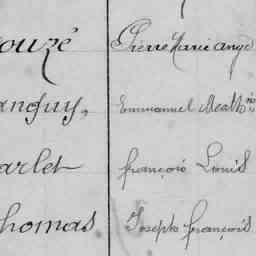 ouzé Pierre Marie ange
anguy, Emmanuel Mathin
arlet françois Louis
homas Joseph françois